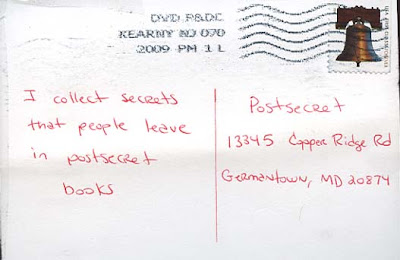 DVD P&DC
KEARNY NJ 070
2009 PM 1 L
I collect secrets
that people leave
in postsecret
books
Postsecret
13345 Copper Ridge Rd
Germantown, MD 20874